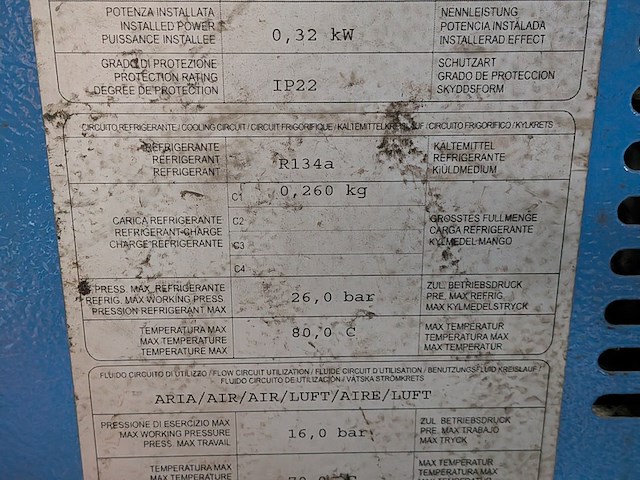 POTENZA INSTALLATA
INSTALLED POWER
PUISSANCE INSTALLEE
0,32 kW
NENNLEISTUNG
POTENCIA INSTALADA
INSTALLERAD EFFECT
GRADO DI PROTEZIONE
PROTECTION RATING
DEGREE DE PROTECTION
IP22
SCHUTZART
GRADO DE PROTECCION
SKYDDSFORM
CIRCUITO REFRIGERANTE / COOLING CIRCUIT / CIRCUIT FRIGORIFIQUE / KALTEMITTELKREISLAUF / CIRCUITO FRIGORIFICO / KYLKRETS
REFRIGERANTE
REFRIGERANT
REFRIGERANT
R134a
KALTEMITTEL
REFRIGERANTE
KIÜLDMEDIUM
CARICA REFRIGERANTE
REFRIGERANT CHARGE
CHARGE REFRIGERANTE
C1 0,260 kg
C2
C3
C4
GROSSTES FULLMENGE
CARGA REFRIGERANTE
KYLMEDEL MANGO
PRESS. MAX REFRIGERANTE
REFRIG. MAX WORKING PRESS
PRESSION REFRIGERANT MAX
26,0 bar
ZUL. BETRIEBSDRUCK
PRE. MAX REFRIG.
MAX KYLMEDELSTRYCK
TEMPERATURA MAX
MAX TEMPERATURE
TEMPERATURE MAX
80,0 C
MAX TEMPERATUR
MAX TEMPERATURA
MAX TEMPERATUR
FLUIDO CIRCUITO DI UTILIZZO / FLOW CIRCUIT UTILIZATION / FLUIDE CIRCUIT D'UTILISATION / BENUTZUNGSFLUID KREISLAUF /
FLUIDO CIRCUITO DE UTILIZACIÓN / VÄTSKA STRÖMKRETS
ARIA/AIR/AIR/LUFT/AIRE/LUFT
PRESSIONE DI ESERCIZIO MAX
MAX WORKING PRESSURE
PRESS. MAX TRAVAIL
16,0 bar
ZUL. BETRIEBSDRUCK
PRE. MAX TRABAJO
MAX TRYCK
TEMPERATURA MAX
MAX TEMPERATURE
MAX TEMPERATUR
MAX TEMPERATURA